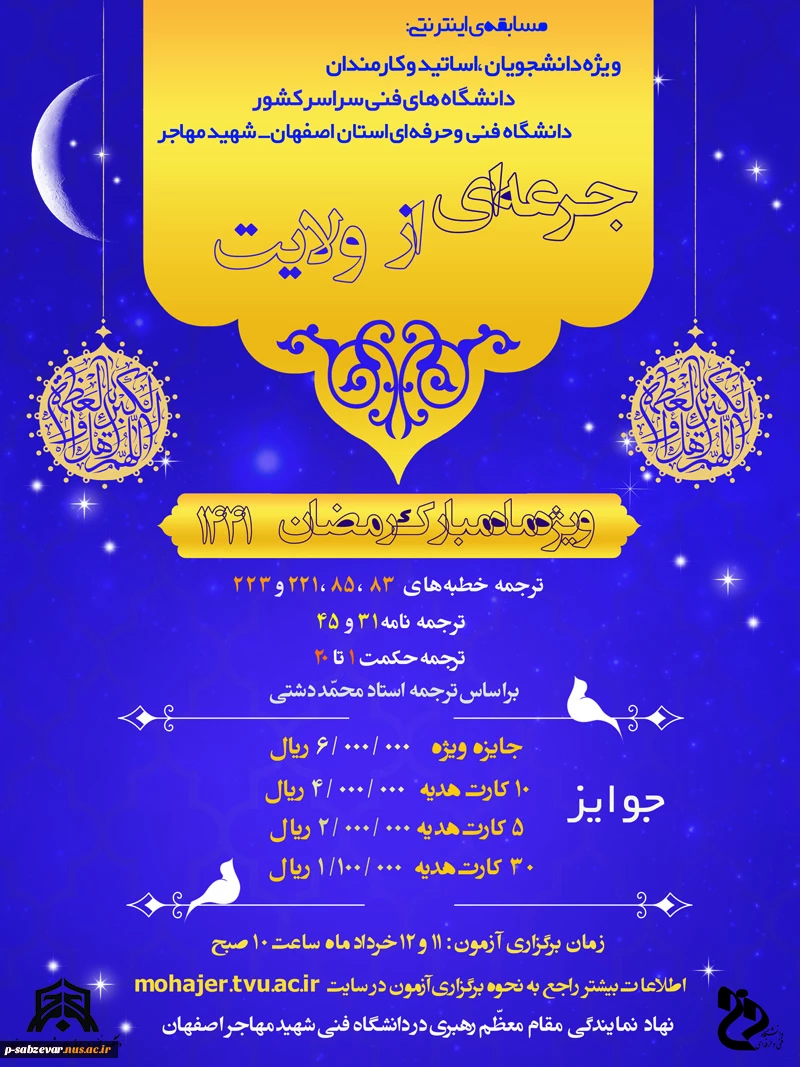 مسابقه‌ی اینترنتی:
ویژه دانشجویان ،اساتید و کارمندان
دانشگاه های فنی سراسر کشور
دانشگاه فنی و حرفه ای استان اصفهان_ شهید مهاجر
جرعه‌ای از ولایت
ویژه ماه مبارک رمضان ۱۴۴۱
ترجمه خطبه های ۸۳ ،۸۵ ،۲۲۱ و ۲۲۳
ترجمه نامه ۳۱ و ۴۵
ترجمه حکمت ۱ تا ۲۰
براساس ترجمه استاد محمّد دشتی
جوایز
جایزه ویژه ۶/۰۰۰/۰۰۰ ریال
۱۰ کارت هدیه ۴/۰۰۰/۰۰۰ ریال
۵ کارت هدیه ۲/۰۰۰/۰۰۰ ریال
۳۰ کارت هدیه ۱/۱۰۰/۰۰۰ ریال
زمان برگزاری آزمون : ۱۱ و ۱۲ خرداد ماه ساعت ۱۰ صبح
اطلاعات بیشتر راجع به نحوه برگزاری آزمون در سایت mohajer.tvu.ac.ir
نهاد نمایندگی مقام معظّم رهبری در دانشگاه فنی شهید مهاجر اصفهان
p-sabzevar.nus.ac.ir